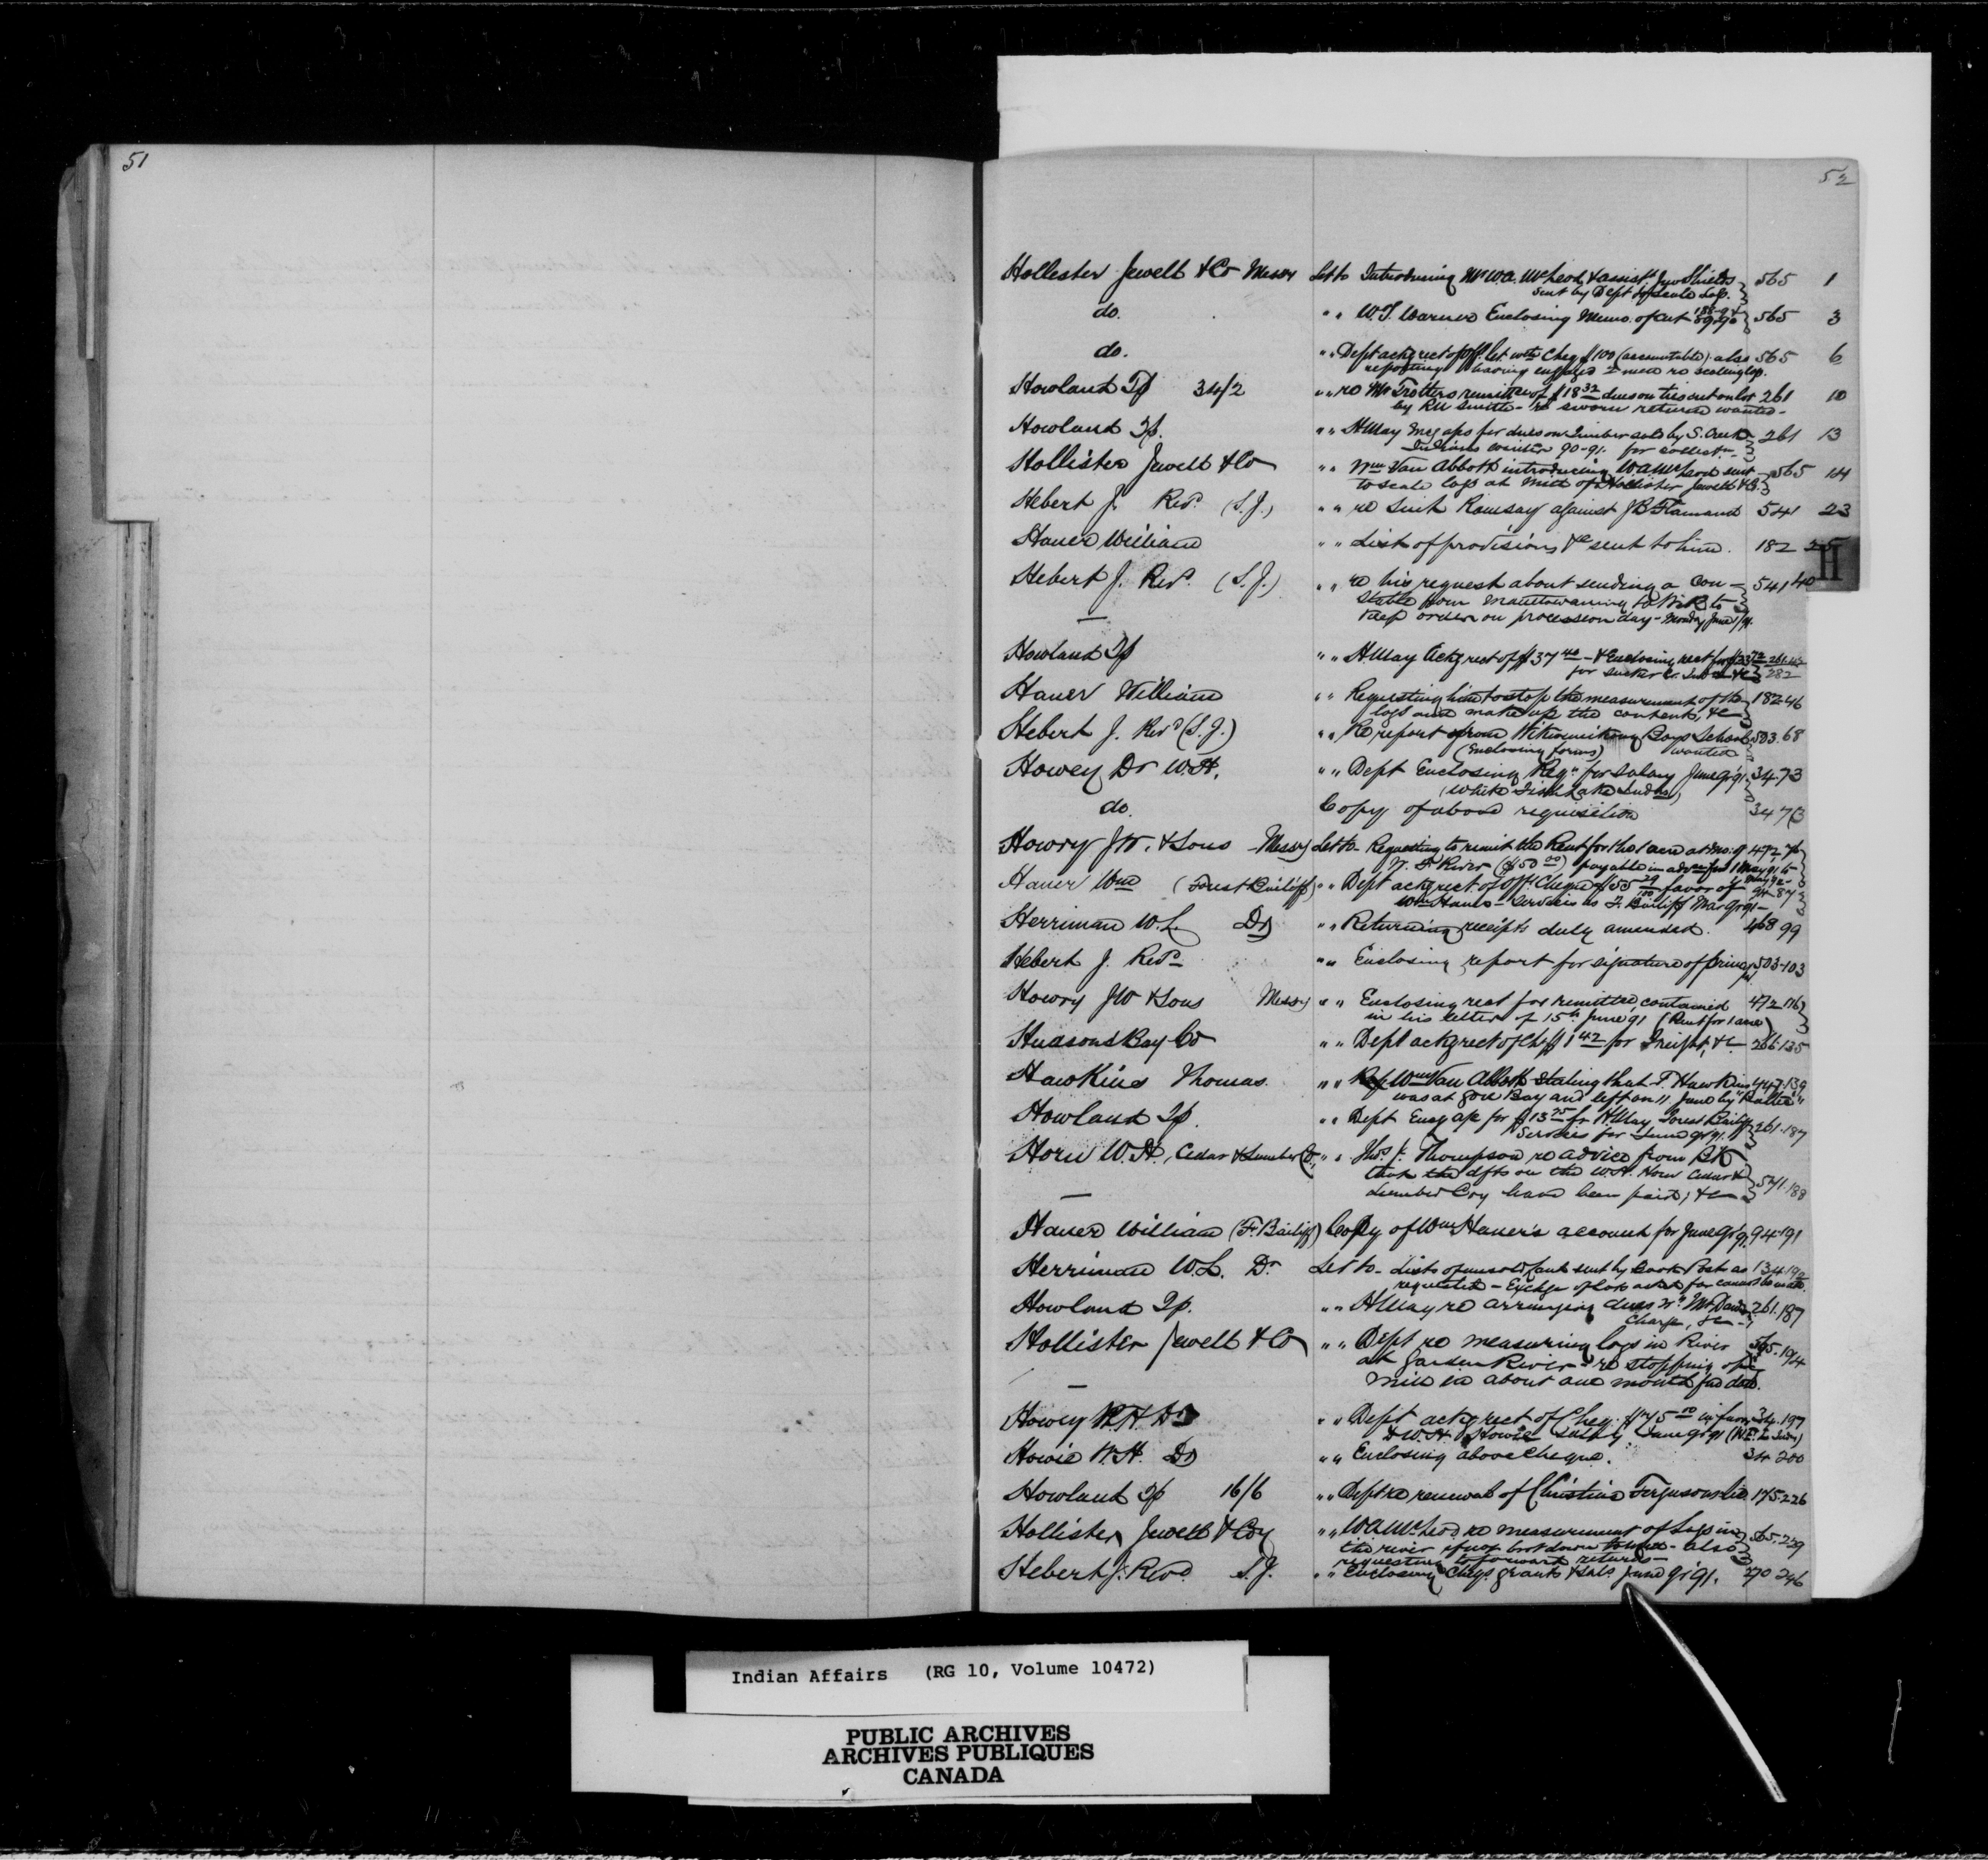 51
52
Hollester Jewett & Co Messrs Let to Introducing Mr W.A. McLeod & assist. Jno Shields 565 1
sent by Dept to scale logs.
do. " " W.J. Warner Enclosing Memo. of cut 89-90 565 3
do. " " Dept ackg rect of Off. let. with Cheq $100 (accountable) also 565 6
reporting having engaged 2 men re scaling logs.
Howland Tp 34/2 " " re Mr Trotters remittce of $18 32 dues on ties cut on lot 261 10
by RM Smith - re sworn returns wanted -
Howland Tp. " " H May encg aps for dues on Timber sold by S. Creek 261 13
Indians winter 90-91. for collectn
Hollister Jewett & Co " " Wm Van Abbott introducing W.A. McLeod sent 565 14
to scale logs at mill of Hollister Jewett & Co
Hebert J. Revd. (S.J.) " " re Suit Ramsay against JB Flamand 541 23
Haner William " " List of provisions &c sent to him. 182 25
H
Hebert J. Revd. (S.J.) " " re his request about sending a Con- 541 40
stable from Manitowaning to Wik to
keep order on procession day - Monday June 1/91.
Howland Tp " " H May Ackg rect of $37 40 - & Enclosing rect for 261.42
for Sucker Cr. Inds &c 282
Haner William " " Requesting him to stop the measurement of the 182 46
logs and make up the contents, &c
Hebert J. Revd (S.J.) " " Re report from Wikwemikong Boys School 503.68
(Enclosing forms) wanted
Howey Dr W.H. " " Dept Enclosing Reqn for Salary June qr 91. 34.73
(White Fish Lake Inds)
do. Copy of above requisition 34 73
Howry J.W. & Sons Messrs Let to - Requesting to remit the Rent for the 1 acre at Mo. of 472 76
($50 00) payable in advance from 1 May 91 to
Haner Wm (Forest Bailiff) " " Dept ackg rect of Off. Cheque $55 favor of 94 87
Wm Haner - Services as F. Bailiff Mar qr 91 -
Herriman W.L. Dr " " Returning receipts duly amended. 468 99
Hebert J. Revd " " Enclosing report for signature of principal 503-103
Howry JW & Sons Messrs " " Enclosing rect for remittce, contained 472 116
in his letter of 15th June 91 (Rent for 1 acre)
Hudsons Bay Co " " Dept ackg rect of Ch $1 42 for Freight, &c 266.135
Hawkins Thomas. " " Rep Wm Van Abbott stating that T. Hawkins 447.139
was at Gore Bay and left on 11 June by "Baltic"
Howland Tp. " " Dept Encg ap for $13 75 fr H May Forest Bailiff 261.187
Services for June qr 91.
Horn W.H. Cedar & Lumber Co. " " Thos J. Thompson re advice from BK
that the dfts on the W.H. Horn Cedar & 571.188
Lumber Coy have been paid, &c
Haner William (F. Bailiff) Copy of Wm Haner's account for June qr 91. 94.191
Herriman W.L. Dr Let to - Lists of unsold lands sent by Book Post as 134.192
requested - Exchge of lots asked for cannot be made.
Howland Tp. " " H May re arranging dues Mr Davis 261.187
Charge, &c -
Hollister Jewett & Co " " Dept re measuring logs in River 565.194
at Garden River - re stopping of
mill in about one month frm date.
Howey W.H. Dr " " Dept ackg rect of Cheq. $75 00 in favor 34.197
Dr W.H. Howie Salary June qr 91
Howie W.H. Dr " " Enclosing above cheque. 34 200
Howland Tp 16/6 " " Dept re renewal of Christina Fergusons lic. 175.226
Hollister Jewett & Coy " " W.A. McLeod re measurement of Logs in 565.229
the river if not brot down to mill - also
requesting to forward returns -
Hebert J. Revd. S.J. " " Enclosing Cheqs. grants & Sals June qr 91. 270 246
Indian Affairs (RG 10, Volume 10472)
PUBLIC ARCHIVES
ARCHIVES PUBLIQUES
CANADA